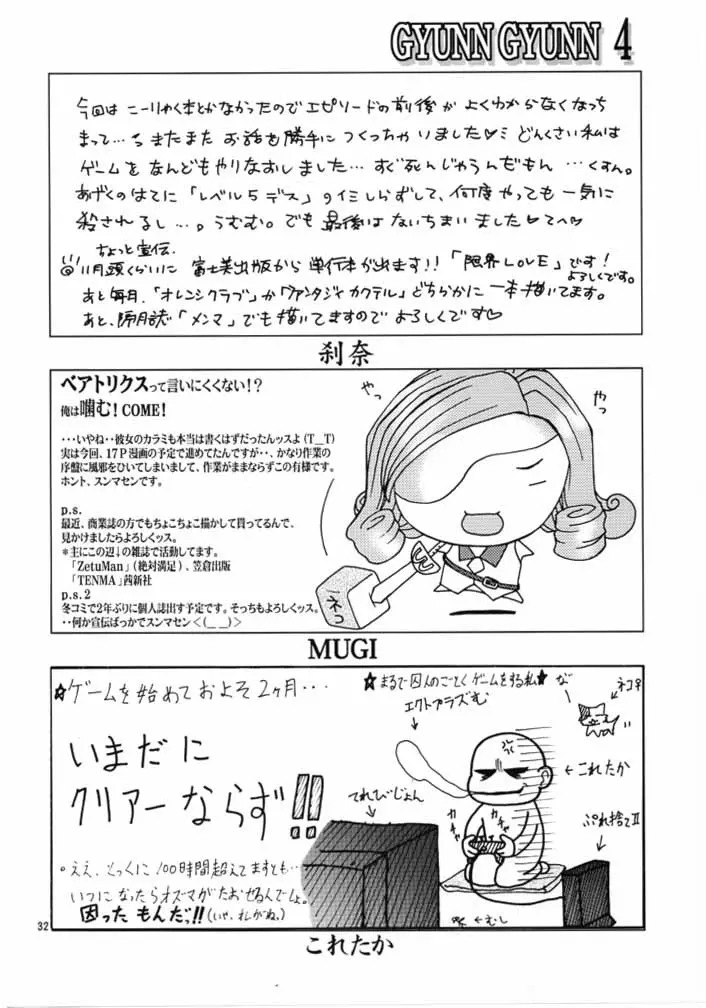 GYUNN GYUNN 4
今回はこーりゃく本とかなかったのでエピソードの前後がよくわからなくなっち
まって…またまたお話を勝手につくっちゃいました♡ミ どんくさい私は
ゲームをなんどもやりなおしました…すぐ死んじゃうんだもん …くすん。
あげくのはてに「レベル5デス」のイミしらずして、何度やっても一気に
殺されるし…。うむむ。でも最後はないちまいました♡てへ♡
ちょっと宣伝.
11月頭くらいに 富士美出版から単行本が出ます!!「限界LOVE」です!
よろしくです。
あと毎月.「オレンジクラブ」か「ファンタジィカクテル」どちらかに一本描いてます。
あと、隔月誌「メンマ」でも描いてますのでよろしくです♡
刹奈
ベアトリクスって言いにくくない!?
俺は噛む!COME!
・・・いやね・・彼女のカラミも本当は書くはずだったんッスよ(T_T)
実は今回、17P漫画の予定で進めてたんですが・・、かなり作業の
序盤に風邪をひいてしまいまして、作業がままならずこの有様です。
ホント、スンマセンです。
p.s.
最近、商業誌の方でもちょこちょこ描かして買ってるんで、
見かけましたらよろしくッス。
*主にこの辺↓の雑誌で活動してます。
「ZetuMan」(絶対満足)、笠倉出版
「TENMA」茜新社
p.s.2
冬コミで2年ぶりに個人誌出す予定です。そっちもよろしくッス。
・・何か宣伝ばっかでスンマセン<(_ _)>
やっ
やっ
ネコ
MUGI
☆ゲームを始めておよそ2ヶ月・・・
いまだに
クリアーならず!!
★まるで囚人のごとくゲームをする私★
エクトプラズむ
な〜
ネコ♀
←これたか
てれびじょん
ガチャ
ガチャ
ぷれ捨てⅡ
。ええ、とっくに100時間超えてますとも…
いつになったらオズマがたおせるんでしょ。
困ったもんだっ!!(いや、オレがね。)
←むし
32
これたか